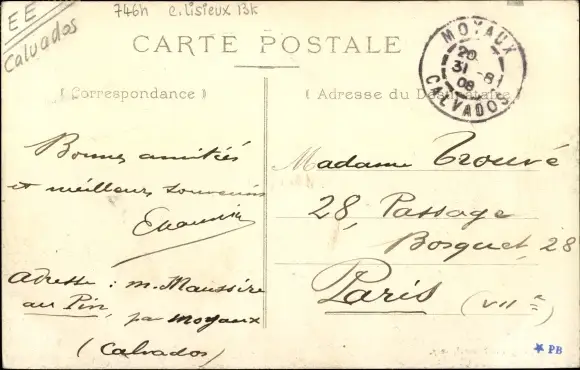 EE
Calvados
746h c. Lisieux 13k
CARTE POSTALE
MOYAUX
20
31 -8
08
CALVADOS
( Correspondance )
( Adresse du Destinataire )
Bonnes amitiés
et meilleurs souvenirs
Adresse : M. Maussire
au Pin, par Moyaux
(Calvados)
Madame Trouvé
28, Passage
Bosquet, 28
Paris (VII e)
PB